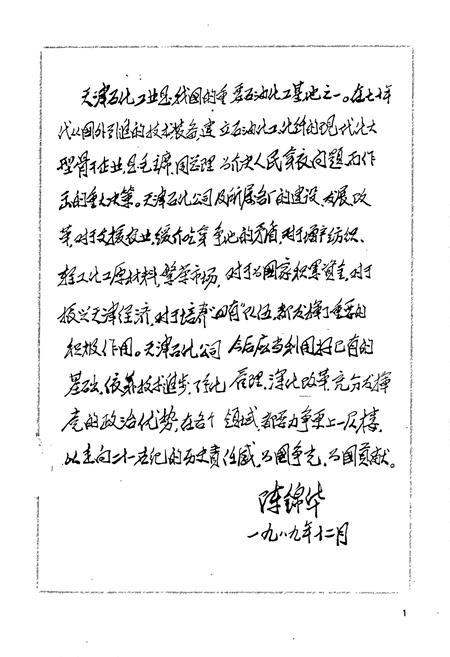 天津石化工业是我国的重要石油化工基地之一。在七十年
代从国外引进的技术装备,建立石油化工化纤的现代化大
型骨干企业,是毛主席、周总理为解决人民穿衣问题而作
出的重大决策。天津石化公司及所属各厂的建设、发展、改
革,对于支援农业,缓介吃穿争地的矛盾,对于增产纺织、
轻工化工原材料,繁荣市场,对于为国家积累资金,对于
振兴天津经济,对于培养“四有”队伍,都发挥了重要的
积极作用。天津石化公司今后应当利用好已有的
基础,依靠技术进步,优化管理,深化改革,充分发挥
党的政治优势,在各个领域都努力争取更上一层楼,
以走向二十一世纪的历史责任感,为国争光,为国贡献。
陈锦华
一九八九年十二月
1